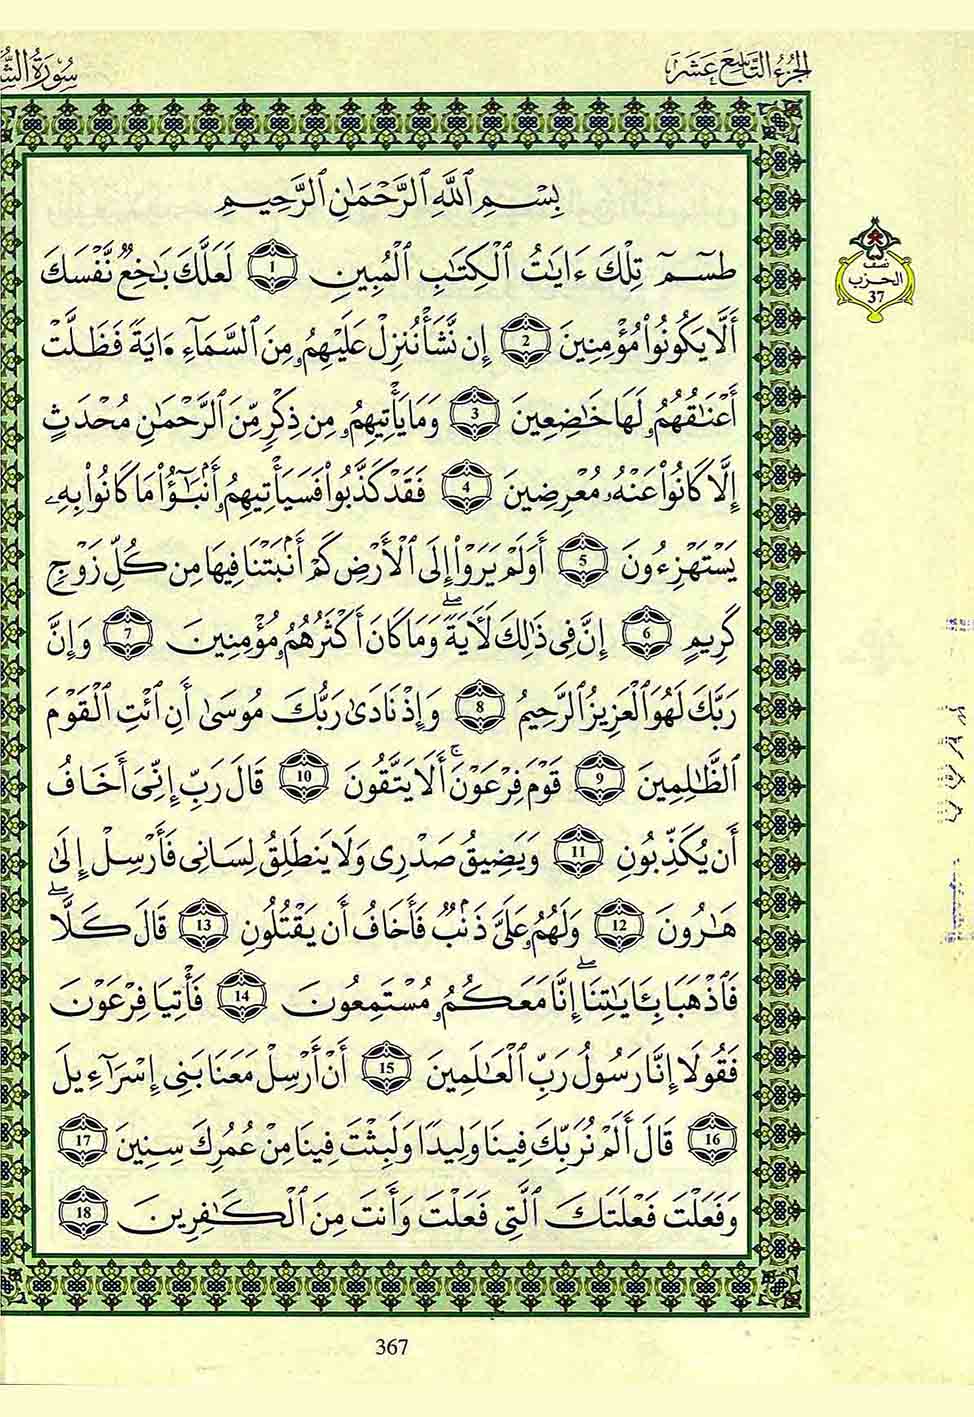 الجُزءُ التَّاسِعَ عَشَرَ
سُورَةُ
بِسْمِ ٱللَّهِ ٱلرَّحْمَٰنِ ٱلرَّحِيمِ
طسٓمٓ تِلْكَ ءَايَٰتُ ٱلْكِتَٰبِ ٱلْمُبِينِ 1 لَعَلَّكَ بَٰخِعٌ نَّفْسَكَ
نصف
الحزب
37
أَلَّا يَكُونُوا۟ مُؤْمِنِينَ 2 إِن نَّشَأْ نُنزِلْ عَلَيْهِمُۥ مِنَ ٱلسَّمَآءِ ءَايَةً فَظَلَّتْ
أَعْنَٰقُهُمُۥ لَهَا خَٰضِعِينَ 3 وَمَا يَأْتِيهِمُۥ مِن ذِكْرٍ مِّنَ ٱلرَّحْمَٰنِ مُحْدَثٍ
إِلَّا كَانُوا۟ عَنْهُۥ مُعْرِضِينَ 4 فَقَدْ كَذَّبُوا۟ فَسَيَأْتِيهِمُۥ أَنۢبَٰٓؤُا۟ مَا كَانُوا۟ بِهِۦ
يَسْتَهْزِءُونَ 5 أَوَلَمْ يَرَوْا۟ إِلَى ٱلْأَرْضِ كَمْ أَنۢبَتْنَا فِيهَا مِن كُلِّ زَوْجٍ
كَرِيمٍ 6 إِنَّ فِى ذَٰلِكَ لَأٓيَةً ۖ وَمَا كَانَ أَكْثَرُهُمُۥ مُؤْمِنِينَ 7 وَإِنَّ
رَبَّكَ لَهُوَ ٱلْعَزِيزُ ٱلرَّحِيمُ 8 وَإِذْ نَادَىٰ رَبُّكَ مُوسَىٰ أَنِ ٱئْتِ ٱلْقَوْمَ
ٱلظَّٰلِمِينَ 9 قَوْمَ فِرْعَوْنَ ۚ أَلَا يَتَّقُونَ 10 قَالَ رَبِّ إِنِّىَ أَخَافُ
أَن يُكَذِّبُونِ 11 وَيَضِيقُ صَدْرِى وَلَا يَنطَلِقُ لِسَانِى فَأَرْسِلْ إِلَىٰ
هَٰرُونَ 12 وَلَهُمُۥ عَلَىَّ ذَنۢبٌ فَأَخَافُ أَن يَقْتُلُونِ 13 قَالَ كَلَّا ۖ
فَٱذْهَبَا بِـَٔايَٰتِنَا ۖ إِنَّا مَعَكُمُۥ مُسْتَمِعُونَ 14 فَأْتِيَا فِرْعَوْنَ
فَقُولَا إِنَّا رَسُولُ رَبِّ ٱلْعَٰلَمِينَ 15 أَنْ أَرْسِلْ مَعَنَا بَنِى إِسْرَآءِيلَ
16 قَالَ أَلَمْ نُرَبِّكَ فِينَا وَلِيدًا وَلَبِثْتَ فِينَا مِنْ عُمُرِكَ سِنِينَ 17
وَفَعَلْتَ فَعْلَتَكَ ٱلَّتِى فَعَلْتَ وَأَنتَ مِنَ ٱلْكَٰفِرِينَ 18
367